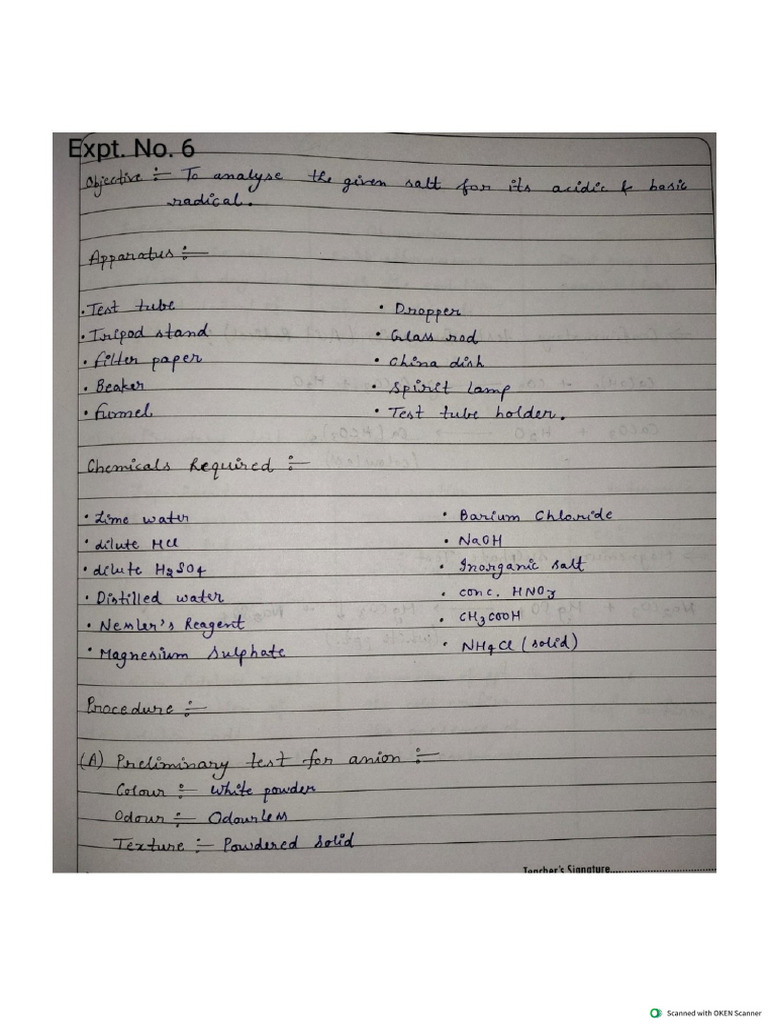 Expt. No. 6
Objective :- To analyse the given salt for its acidic & basic
radical.
Apparatus :-
• Test tube
• Tripod stand
• filter paper
• Beaker
• funnel
• Dropper
• Glass rod
• China dish
• Spirit Lamp
• Test tube holder.
Chemicals Required :-
• Lime water
• dilute HCl
• dilute H2SO4
• Distilled water
• Nessler's Reagent
• Magnesium Sulphate
• Barium Chloride
• NaOH
• Inorganic salt
• conc. HNO3
• CH3COOH
• NH4Cl (solid)
Procedure :-
(A) Preliminary test for anion :-
Colour :- White powder
Odour :- Odourless
Texture :- Powdered solid
Teacher's Signature
Scanned with OKEN Scanner